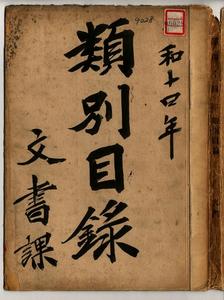 和十四年
類別目錄
文書課
9028